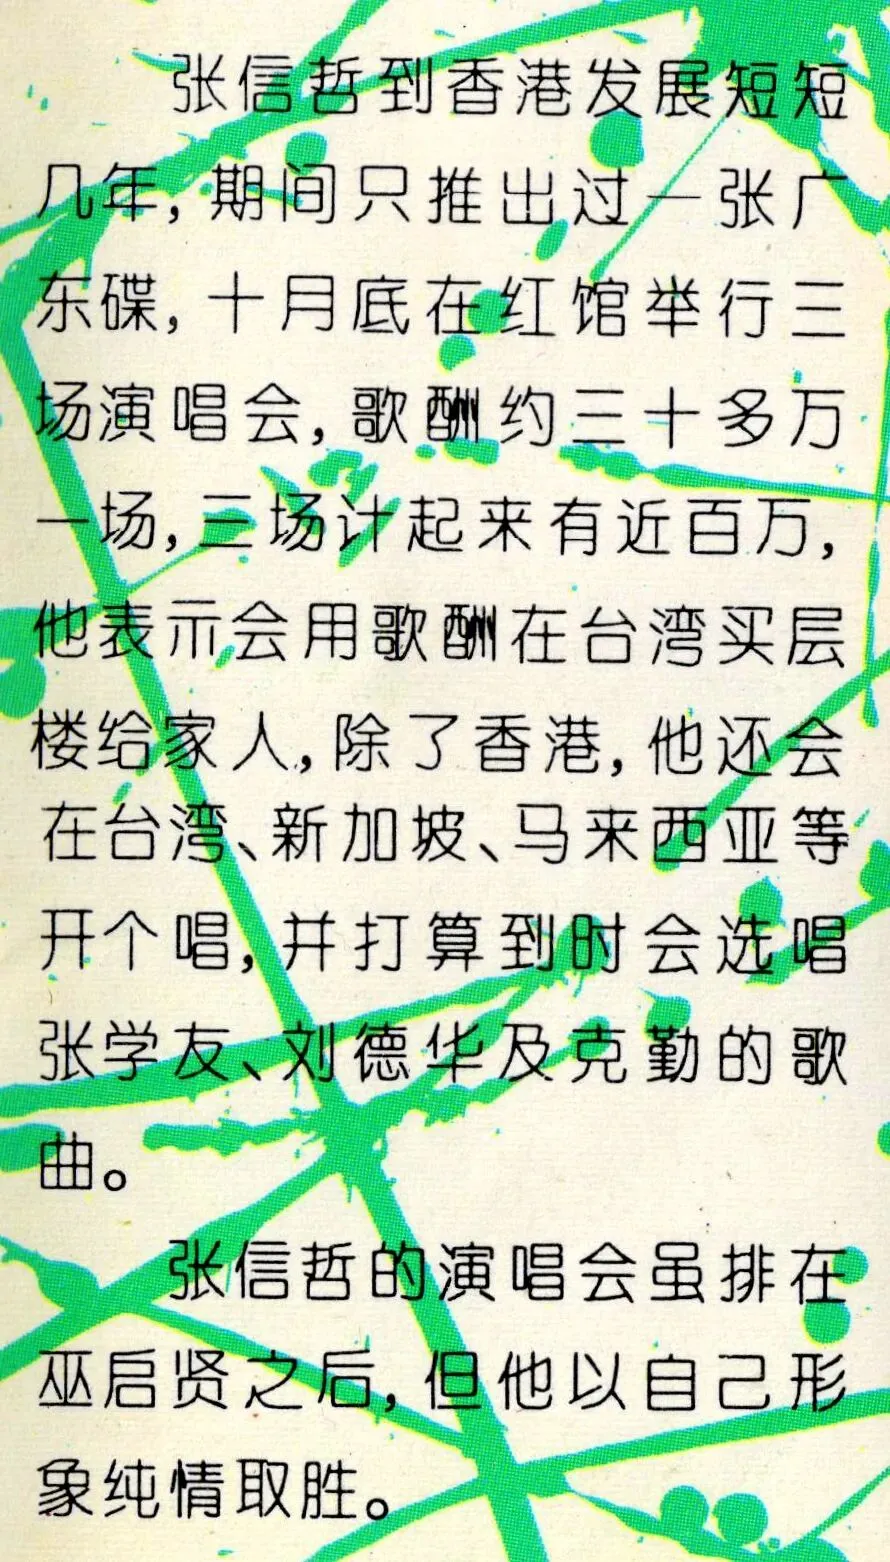 张信哲到香港发展短短
几年,期间只推出过一张广
东碟,十月底在红馆举行三
场演唱会,歌酬约三十多万
一场,三场计起来有近百万,
他表示会用歌酬在台湾买层
楼给家人,除了香港,他还会
在台湾、新加坡、马来西亚等
开个唱,并打算到时会选唱
张学友、刘德华及克勤的歌
曲。
张信哲的演唱会虽排在
巫启贤之后,但他以自己形
象纯情取胜。